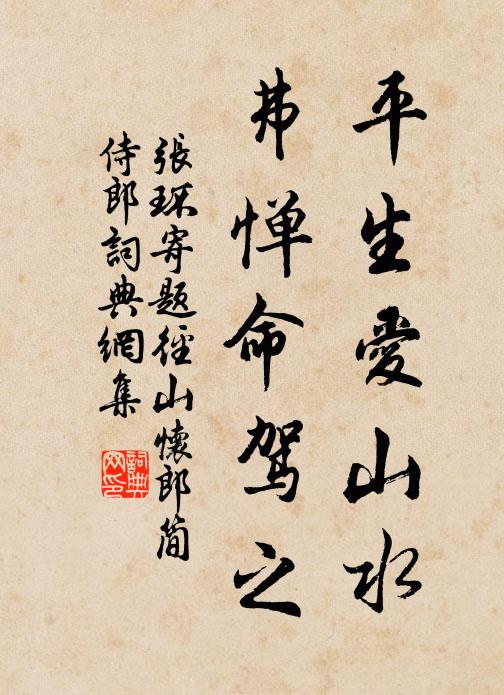 平生愛山水
弗憚命駕之
張琛寄題徑山懷郎簡
侍郎詞典網集
詞典網印